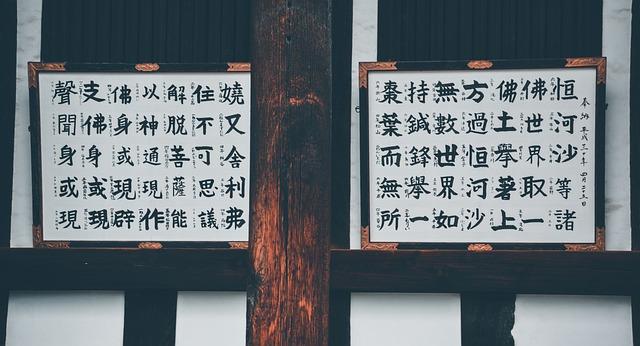 奉納 平成三十年四月
恒河沙等諸
佛世界取一
佛土擧著上
方過恒河沙
無數世界如
持鍼鋒擧一
棗葉而無所
嬈又舍利弗
住不可思議
解脱菩薩能
以神通現作
佛身或現辟
支佛身或現
聲聞身或現